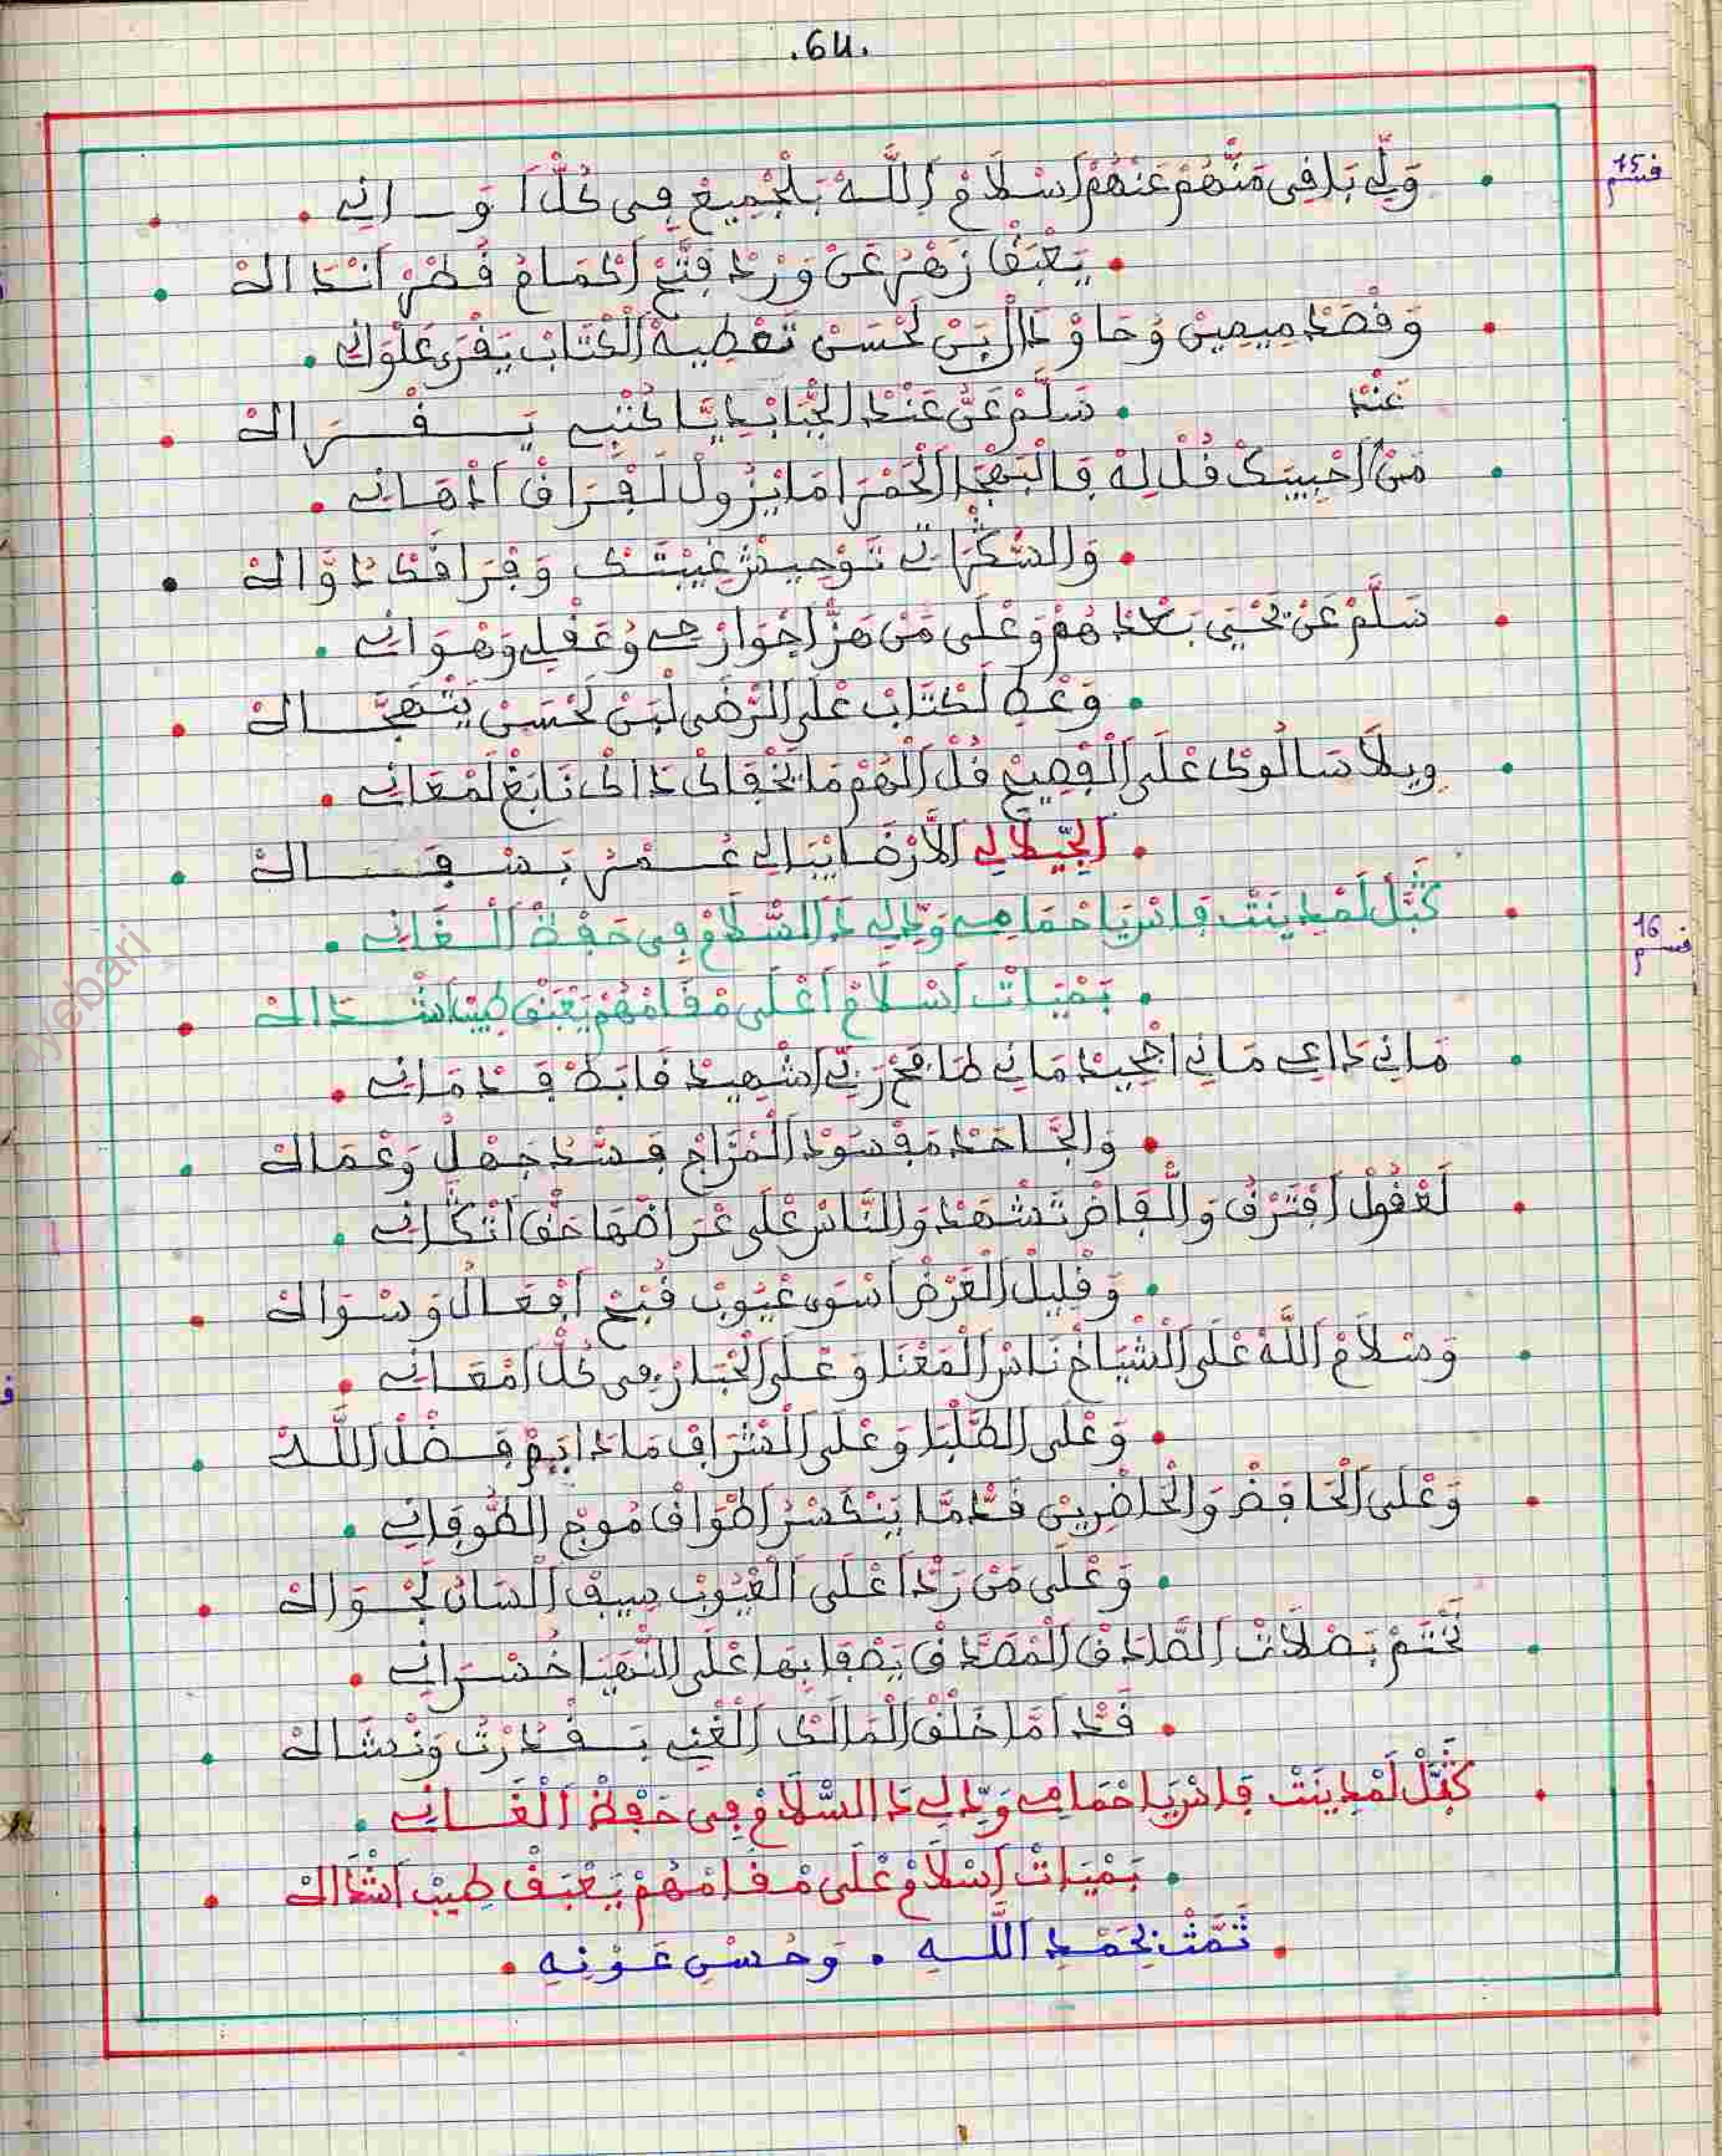 .64.
قسم 15
وَلِّي بَافِي مَنْهُمْ عَنْهُمْ اسْلَامْ اللَّهْ بَالْجْمِيعْ فِي كُلّْ اوَانِي
يَعْبَقْ زَهْرُ عَنْ وَرْدْ فَتَّحْ اكْمَامُ قُطْرْ انْدَالُهْ
وَقْصَدْ مِيمِينْ وُحَاوْ دَالْ بَنْ لَحْسَنْ تَعْطِيهْ الْكْتَابْ يَقْرَى عَلْوَانِي
سَلَّمْ عَنُّ عَنْدْ الجْبَابْدِيَّا كُتْبِي يَقْرَالُهْ
عَنْدْ
مَنْ احْبِيبَكْ قُلْ لِهْ فَالْبَهْجَا الْحَمْرَا مَا يْزُولْ لَفْرَاقْ ادْهَانِي
وَالسُّكْرَاتِي تَوْحِيشْ غِيبْتَكْ وَفْرَاقَكْ دَاوَّالُهْ
سَلَّمْ عَنْ يَحْيَى بَعْدْهُمْ وَعْلَى مَنْ هَزّْ اجْوَارْحِي وُعَقْلِي وَهْوَانِي
وَعْطِ لَكْتَابْ عْلَى الرّْضَى لْبَنْ لَحْسَنْ يَتْهَجَّالُهْ
وِيلَا سَالُوكْ عْلَى الْفْصِيحْ قُلْ الْهُمْ مَا يَخْفَاكْ دَاكْ نَابَغْ لَمْعَانِي
الجِّيلَالِي لَارْضَايْبَالِي عُمْرُ بَسْفَالُهْ
قسم 16
كَتَّلْ لَمْدِينَتْ فَاسْ يَا حْمَامِي وَدِّي لِي دَالسَّلَامْ فِي حَفْظْ الْغَانِي
بَمْيَاتْ اسْلَامْ اعْلَى مْقَامْهُمْ يَعْبَقْ طِيبْ اشْدَالُهْ
مَانِي دَاعِي مَانِي اجْحِيدْ مَانِي طَامَحْ رَبِّي اشْهِيدْ ضَابَطْ قَدْ مَانِي
وَالجَّاحَدْ مَفْسُودْ الْمْزَاجْ فَسْدُ جَهْلُ وَعْمَالُهْ
لَعْقُولْ افْتَرْقُ وَالْقَاضْ تَشْهَدْ وَالنَّاسْ عْلَى غْرَاضْهَا حَقّْ اتْكَرَانِي
وَقْلِيلْ الْعَرْضْ اسْوَى عْيُوبْ قُبْحْ افْعَالُ وَسْوَالُهْ
وَسْلَامْ اللَّهْ عْلَى الْشْيَاخْ نَاسْ الْمَعْنَا وَعْلَى الْكْبَارْ فِي كُلّْ امْعَانِي
وَعْلَى الطَّلْبَا وَعْلَى الْشْرَافْ مَادَايَمْ فَضْلْ اللَّهْ
وَعْلَى الْحَافَظْ وَالْحَاضْرِينْ قَدّْمَا يَتْكَسْرُ اطْوَافْ مُوجْ الطُّوفَانِي
وَعْلَى مَنْ رَدّْ اعْلَى الْعْيُوبْ سِيفْ الْسَانُ لَحْوَالُهْ
نَخْتَمْ بَصْلَاتْ الصَّادَقْ الْمْصَدَّقْ يَصْفَا بِهَا عْلَى النّْهَيَا خُسْرَانِي
قَدّْ امَا خَلْقْ الْمَالَكْ الْغْنِي بَقْدُرْتُ وَنْشَالُهْ
كَتَّلْ لَمْدِينَتْ فَاسْ يَا حْمَامِي وَدِّي لِي دَالسَّلَامْ فِي حَفْظْ الْغَانِي
بَمْيَاتْ اسْلَامْ عْلَى مْقَامْهُمْ يَعْبَقْ طِيبْ اشْدَالُهْ
تَمَّتْ بِحَمْدِ اللَّهِ . وَحُسْنِ عَوْنِهِ